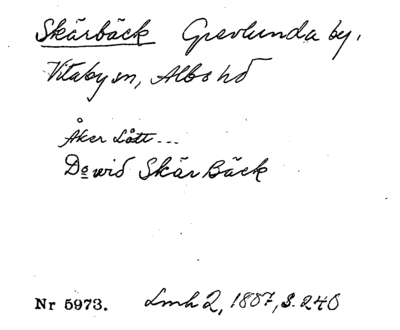 Skärbäck Grevlunda by,
Vitaby sn, Albo hd
Åker Lått...
Do wid Skär Bäck
Nr 5973. Lmh 2, 1807, S. 240